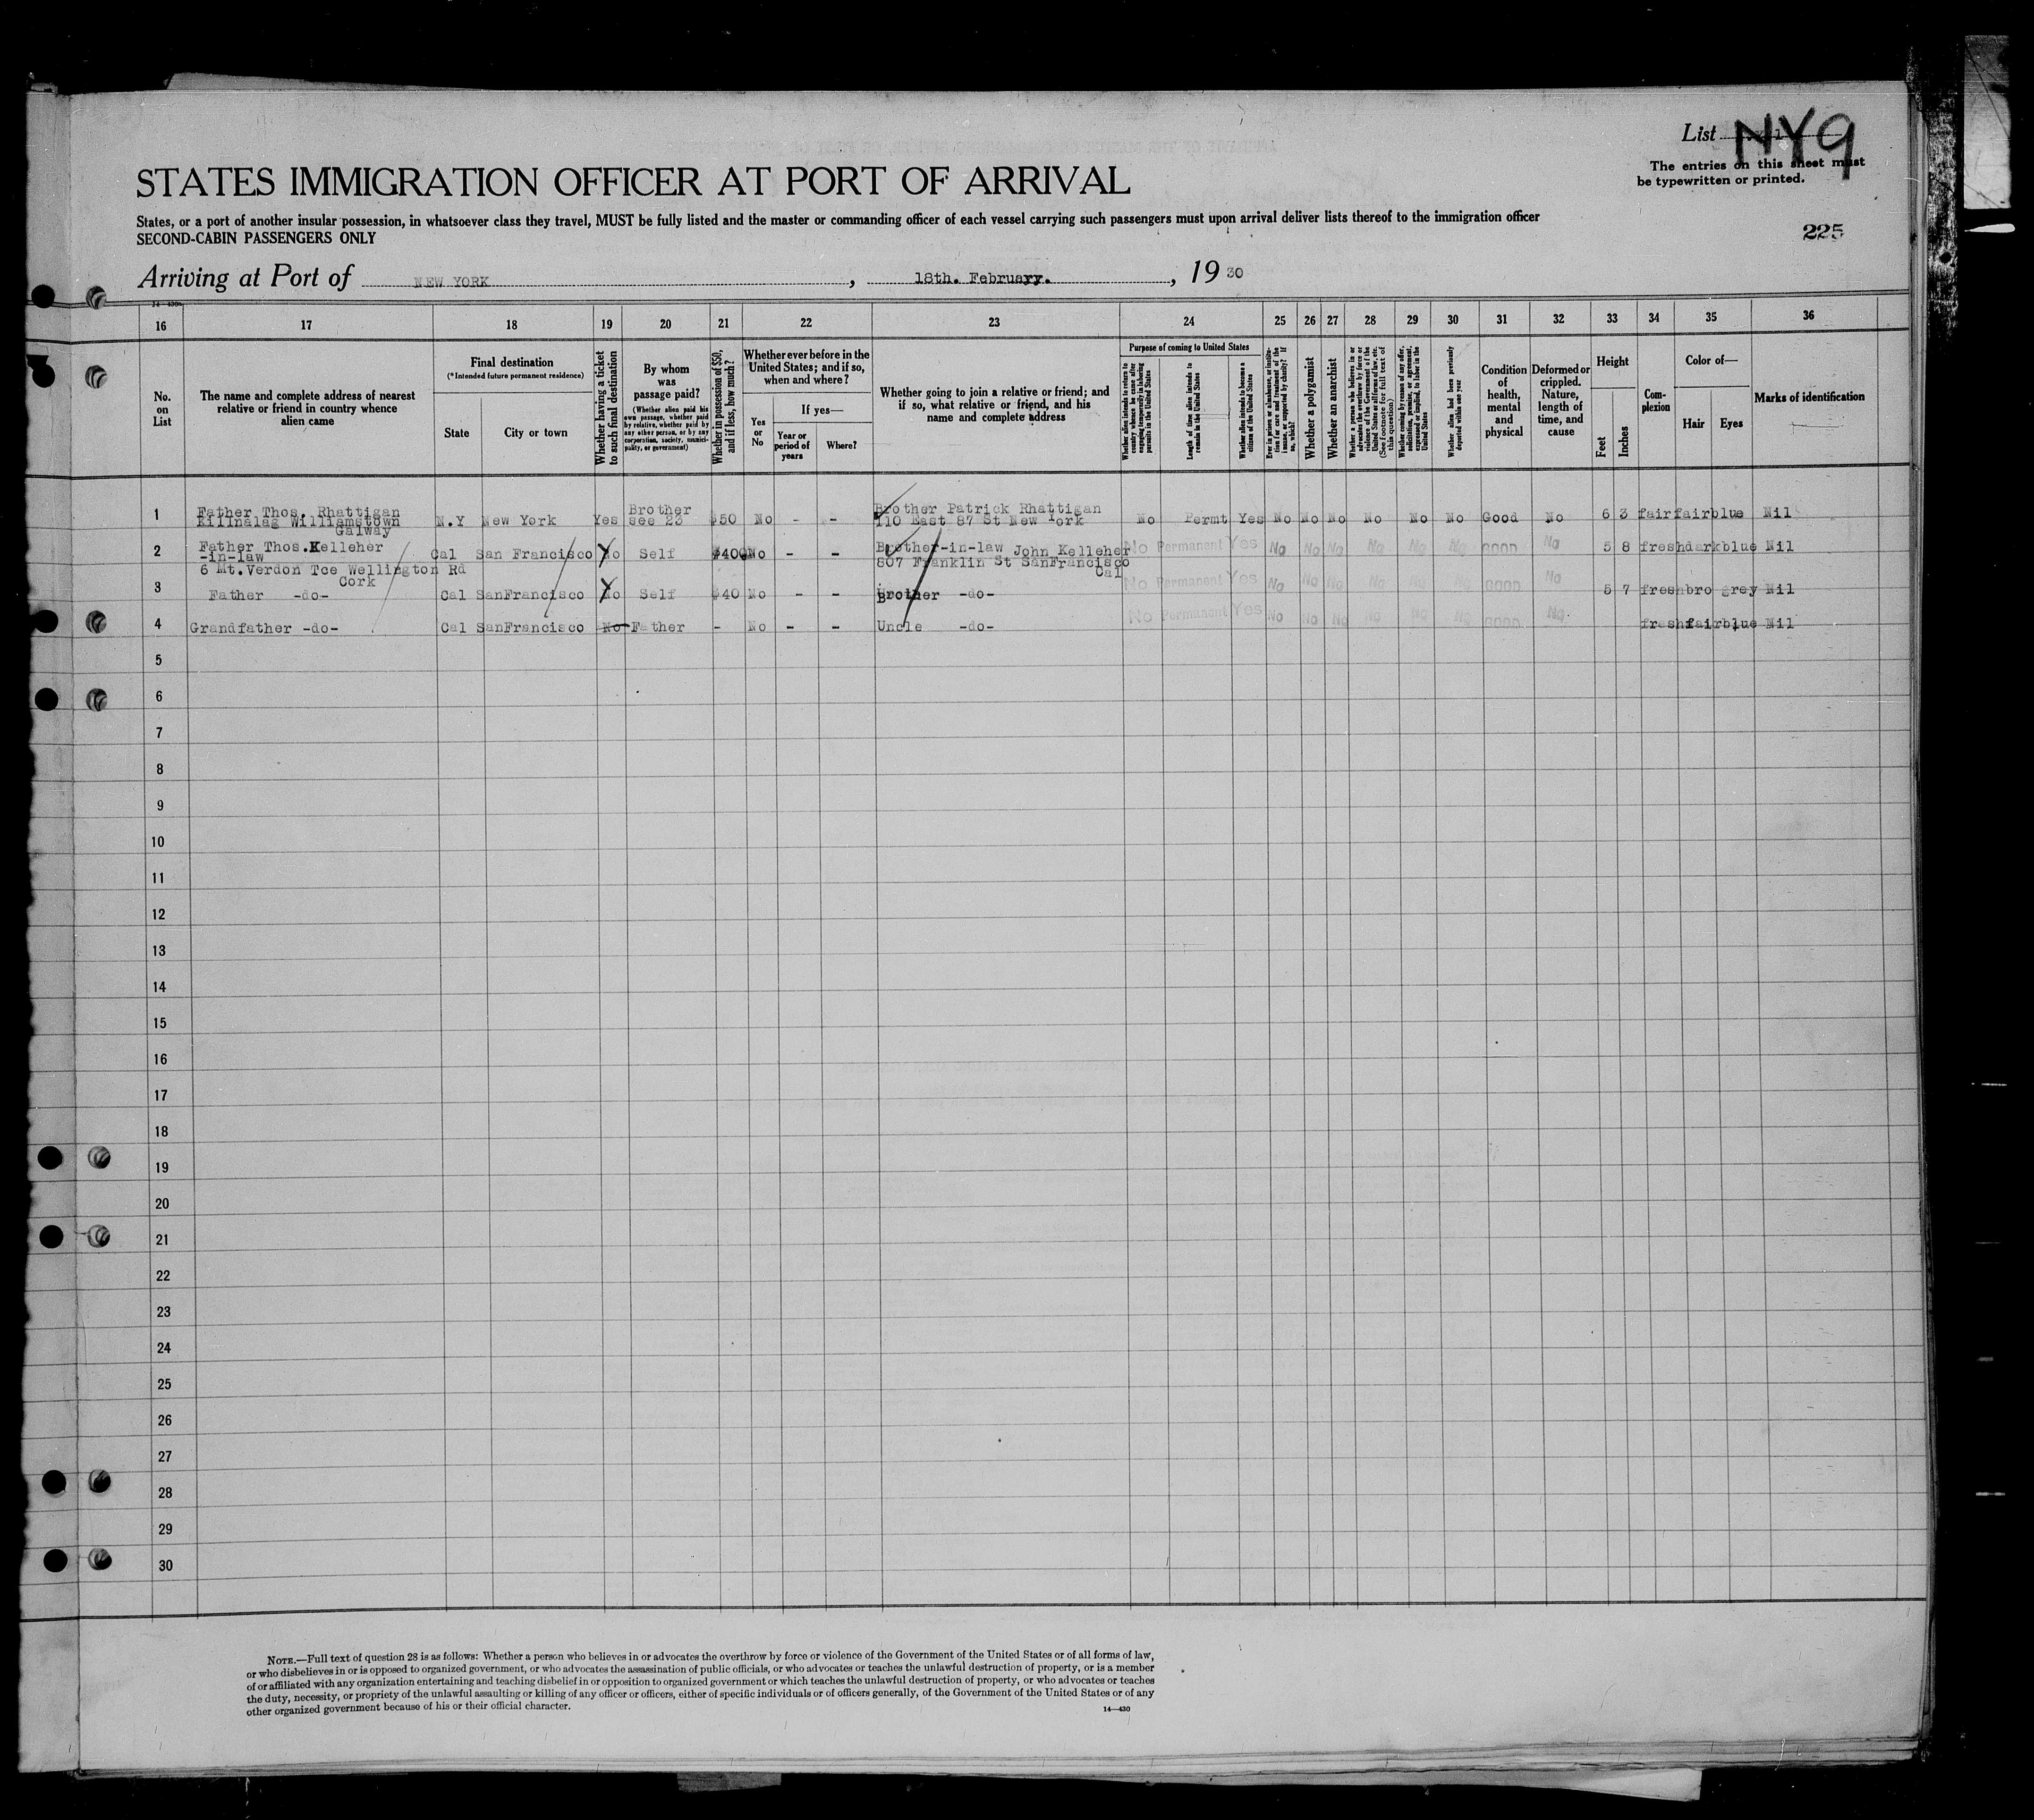 List NY9
The entries on this sheet must
be typewritten or printed.
STATES IMMIGRATION OFFICER AT PORT OF ARRIVAL
States, or a port of another insular possession, in whatsoever class they travel, MUST be fully listed and the master or commanding officer of each vessel carrying such passengers must upon arrival deliver lists thereof to the immigration officer
SECOND-CABIN PASSENGERS ONLY
225
Arriving at Port of NEW YORK, 18th. February., 19 30
16 17 18 19 20 21 22 23 24 25 26 27 28 29 30 31 32 33 34 35 36
No. on List
The name and complete address of nearest relative or friend in country whence alien came
Final destination
(*Intended future permanent residence)
State
City or town
Whether having a ticket to such final destination
By whom was passage paid?
(Whether alien paid his own passage, whether paid by relative, whether paid by any other person, or by any corporation, society, municipality, or government)
Whether in possession of $50, and if less, how much?
Whether ever before in the United States; and if so, when and where?
Yes or No
If yes—
Year or period of years
Where?
Whether going to join a relative or friend; and if so, what relative or friend, and his name and complete address
Purpose of coming to United States
Whether alien intends to return to country whence he came after engaging temporarily in laboring pursuits in the United States
Length of time alien intends to remain in the United States
Whether alien intends to become a citizen of the United States
Ever in prison or almshouse, or institution for care and treatment of the insane, or supported by charity? If so, which?
Whether a polygamist
Whether an anarchist
Whether a person who believes in or advocates the overthrow by force or violence of the Government of the United States or all forms of law, etc. (See footnote for full text of this question)
Whether coming by reason of any offer, solicitation, promise, or agreement, expressed or implied, to labor in the United States
Whether alien had been previously deported within one year
Condition of health, mental and physical
Deformed or crippled. Nature, length of time, and cause
Height
Feet
Inches
Complexion
Color of—
Hair
Eyes
Marks of identification
1 Father Thos. Rhattigan Killnalag Williamstown Galway N.Y New York Yes Brother see 23 $50 No - - Brother Patrick Rhattigan 110 East 87 St New York No Permt Yes No No No No No No Good No 6 3 fair fair blue Nil
2 Father Thos. Kelleher -in-law Cal San Francisco No Self $400 No - - Brother-in-law John Kelleher 807 Franklin St SanFrancisco Cal No Permanent Yes No No No No No No GOOD No 5 8 fresh dark blue Nil
6 Mt. Verdon Tce Wellington Rd Cork
3 Father -do- Cal SanFrancisco No Self $40 No - - Brother -do- No Permanent Yes No No No No No No GOOD No 5 7 fresh bro grey Nil
4 Grandfather -do- Cal SanFrancisco No Father - No - - Uncle -do- No Permanent Yes No No No No No No GOOD No fresh fair blue Nil
5
6
7
8
9
10
11
12
13
14
15
16
17
18
19
20
21
22
23
24
25
26
27
28
29
30
NOTE.—Full text of question 28 is as follows: Whether a person who believes in or advocates the overthrow by force or violence of the Government of the United States or of all forms of law,
or who disbelieves in or is opposed to organized government, or who advocates the assassination of public officials, or who advocates or teaches the unlawful destruction of property, or is a member
of or affiliated with any organization entertaining and teaching disbelief in or opposition to organized government or which teaches the unlawful destruction of property, or who advocates or teaches
the duty, necessity, or propriety of the unlawful assaulting or killing of any officer or officers, either of specific individuals or of officers generally, of the Government of the United States or of any
other organized government because of his or their official character.
14—430